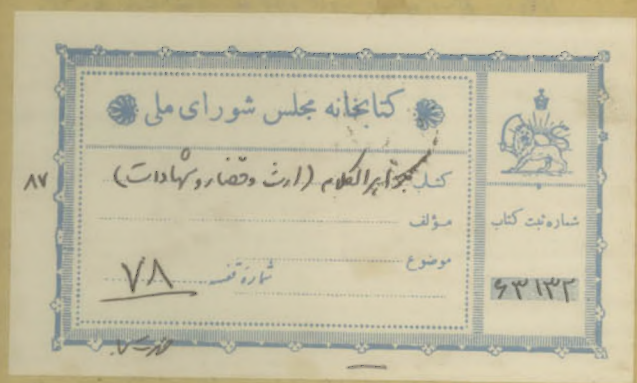 کتابخانه مجلس شورای ملی
کتاب جواهرالکلام (ارث و قضاء و شهادات)
مؤلف
موضوع
شماره قفسه ۷۸
شماره ثبت کتاب
۶۳۱۳۲
۸۷